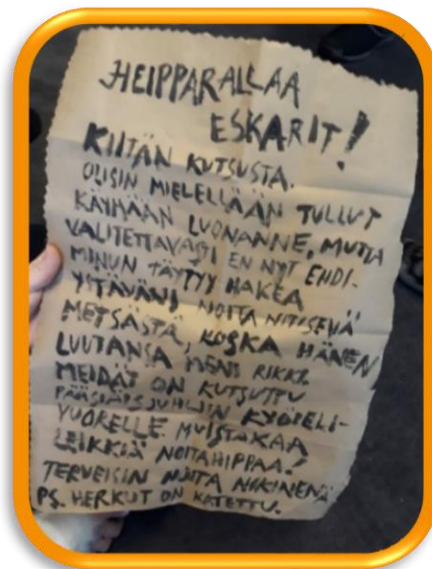 HEIPPARALLAA
ESKARIT!
KIITÄN KUTSUSTA.
OLISIN MIELELLÄÄN TULLUT
KÄYMÄÄN LUONANNE, MUTTA
VALITETTAVASTI EN NYT EHDI.
MINUN TÄYTYY HAKEA
YSTÄVÄNI NOITA NITISEVÄ
METSÄSTÄ, KOSKA HÄNEN
LUUTANSA MENI RIKKI.
MEIDÄT ON KUTSUTTU
PÄÄSIÄISJUHLIIN KYÖPELI-
VUORELLE. MUISTAKAA
LEIKKIÄ NOITAHIPPAA!
TERVEISIN NOITA NOKINENÄ
PS. HERKUT ON KATETTU.